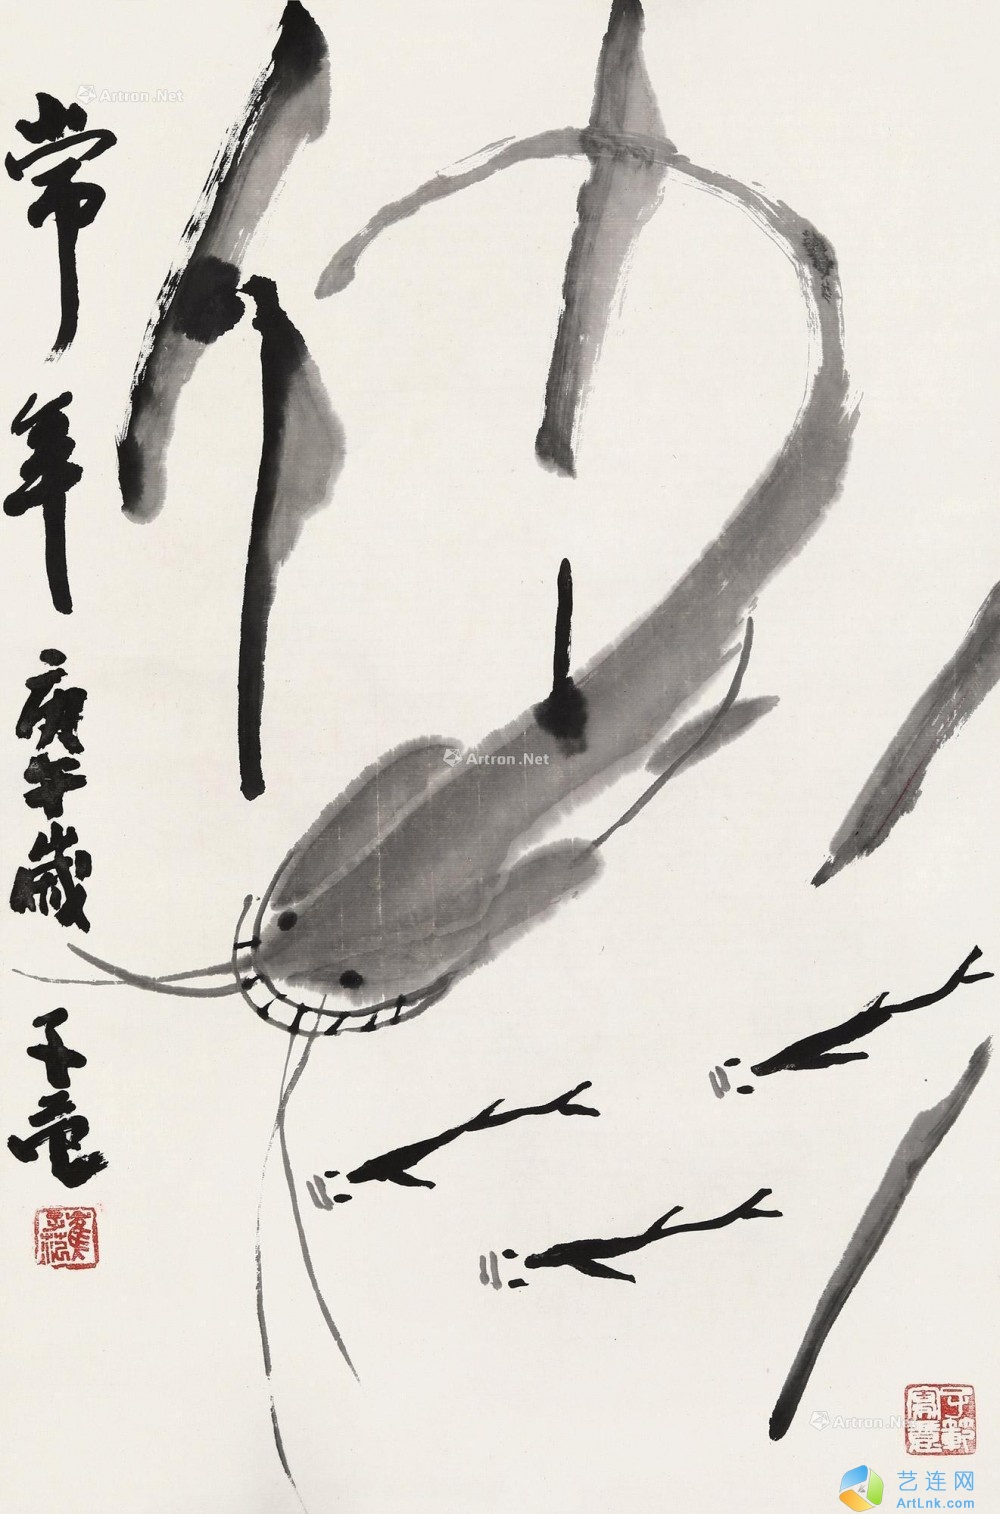 常年
庚午歲 子范
崔子范
Artron.Net
Artron.Net
Artron.Net
艺连网
ArtLnk.com